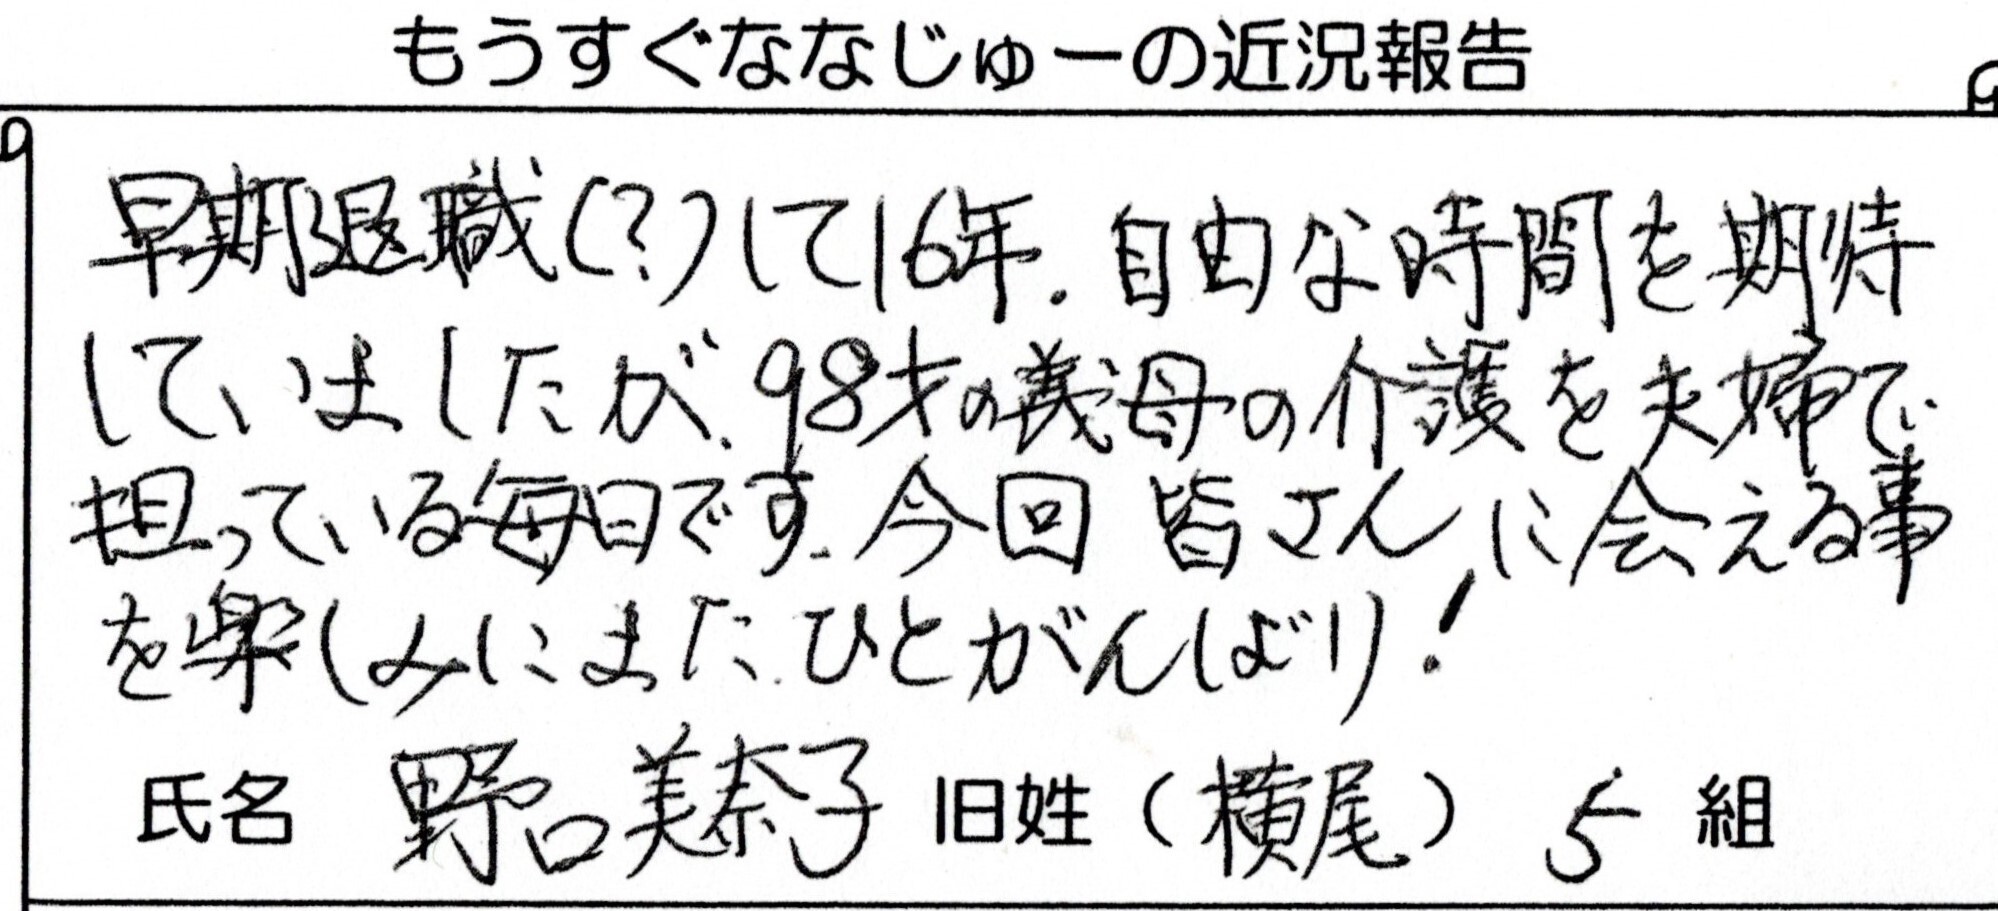 もうすぐななじゅーの近況報告
早期退職(?)して16年．自由な時間を期待
していましたが、98才の義母の介護を夫婦で
担っている毎日です．今回 皆さんに会える事
を楽しみにまた．ひとがんばり！
氏名 野口美奈子 旧姓（横尾） 5 組